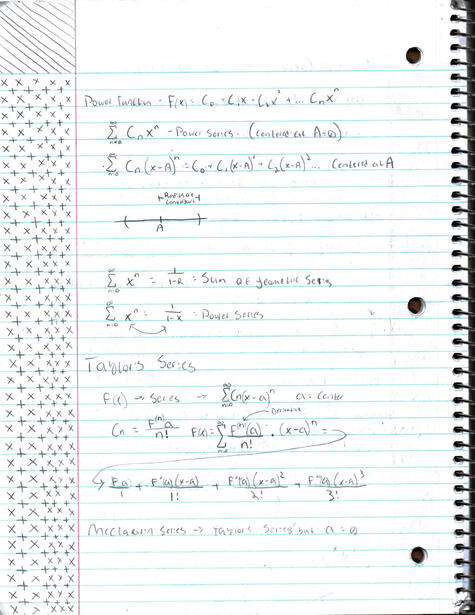 Power Function - F(x) = C₀ + C₁x + C₂x² + ... Cₙxⁿ ...
∞ Σ n=0 Cₙxⁿ - Power Series. (centered at A=0)
∞ Σ n=0 Cₙ(x-A)ⁿ = C₀ + C₁(x-A)¹ + C₂(x-A)² ... Centered at A
Radius of
A
∞ Σ n=0 xⁿ = 1/(1-R) = Sum of geometric Series
∞ Σ n=0 xⁿ = 1/(1-x) = Power Series
Taylor's Series
F(x) → Series → ∞ Σ n=0 Cn(x-a)ⁿ a = center
Derivative
Cn = F⁽ⁿ⁾a/n! F(x) = ∞ Σ n=0 F⁽ⁿ⁾(a)/n! · (x-a)ⁿ =
F(a)/1 + F'(a)(x-a)/1! + F''(a)(x-a)²/2! + F'''(a)(x-a)³/3!
Mcclaurin Series → Taylors Series but a = 0